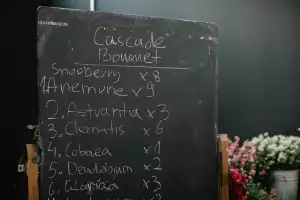 Cascade
Bouquet
Snowberry x 8
1. Anemone x 9
2. Astrantia x 3
3. Clematis x 6
4. Cobaea x 1
5. Dendrobium x 2
6. Gloriosa x 3